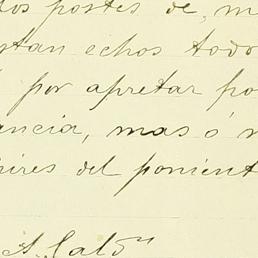 postes de, m
stan echos todo
por apretar po
ancia, mas ó m
aires del ponient